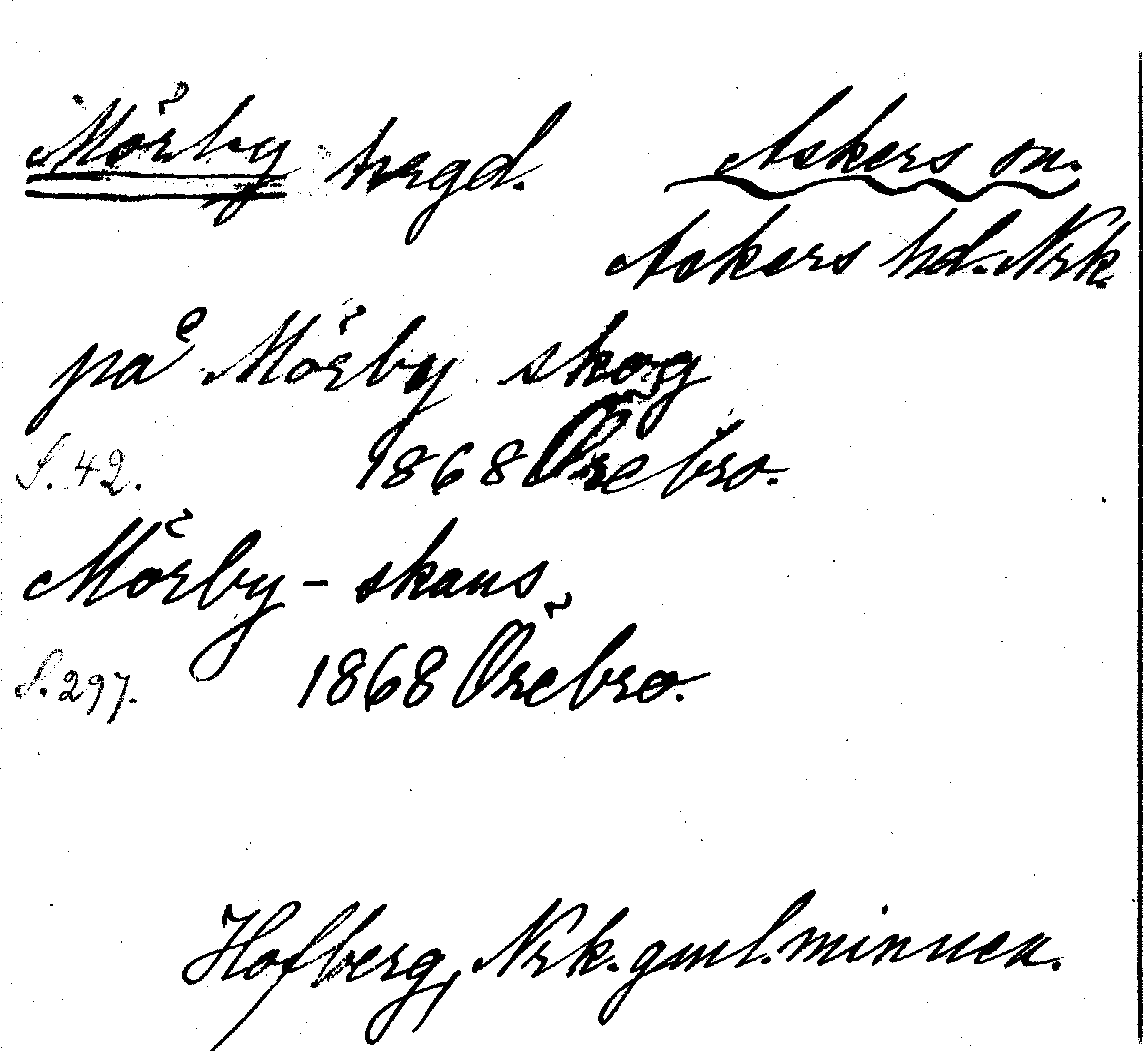 Mörby hrgd. Askers sn.
Askers hd. Nrk.
på Mörby skog
S. 42. 1868 Örebro.
Mörby - skans,
S. 297. 1868 Örebro.
Hofberg, Nrk. gml. minnen.